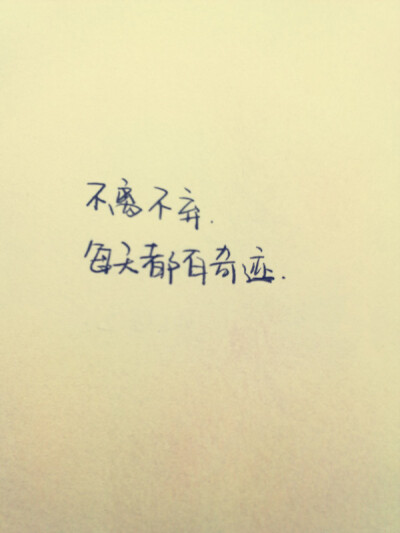 不离不弃.
每天都有奇迹.